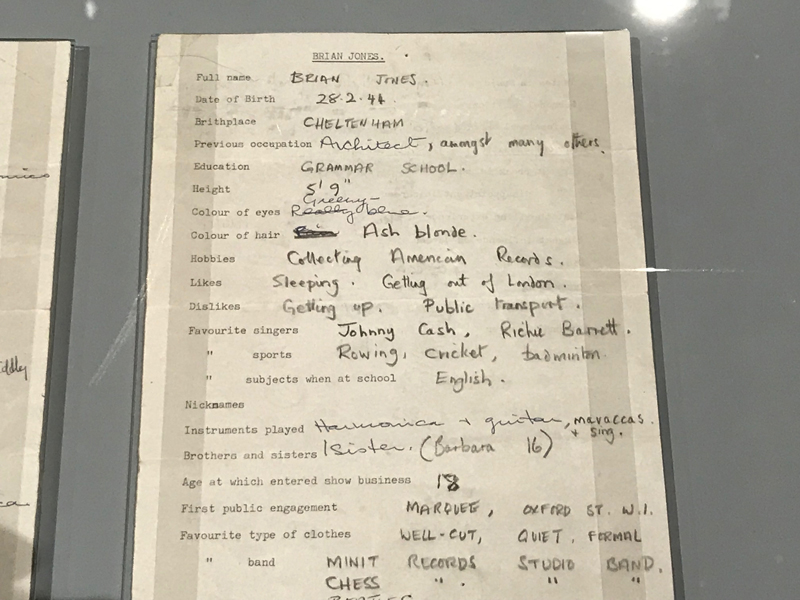 BRIAN JONES.
Full name BRIAN JONES.
Date of Birth 28.2.44.
Birthplace CHELTENHAM
Previous occupation Architect, amongst many others.
Education GRAMMAR SCHOOL.
Height 5' 9"
Greeny-
Colour of eyes Really blue.
Colour of hair Ash blonde.
Hobbies Collecting American Records.
Likes Sleeping. Getting out of London.
Dislikes Getting up. Public transport.
Favourite singers Johnny Cash, Richie Barrett.
" sports Rowing, cricket, badminton
" subjects when at school English.
Nicknames
Instruments played Harmonica + guitar, maraccas.
+ sing.
Brothers and sisters 1 sister. (Barbara 16)
Age at which entered show business 18
First public engagement MARQUEE, OXFORD ST. W.1.
Favourite type of clothes WELL-CUT, QUIET, FORMAL
" band MINIT RECORDS STUDIO BAND.
CHESS " " "